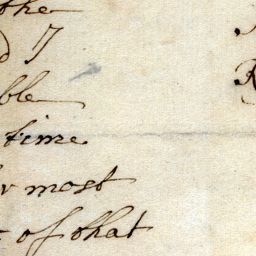 the
ble
time
most
of that